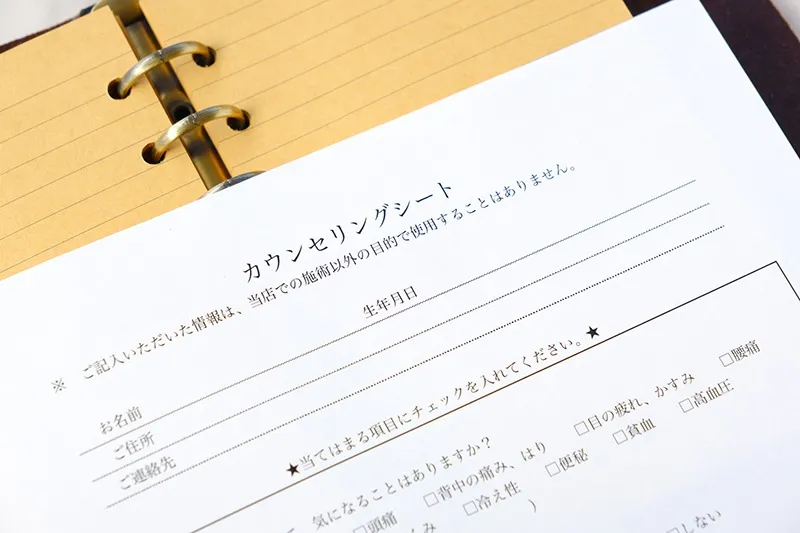 カウンセリングシート
※ ご記入いただいた情報は、当店での施術以外の目的で使用することはありません。
お名前 生年月日
ご住所
ご連絡先
★当てはまる項目にチェックを入れてください。★
気になることはありますか？
□頭痛 □背中の痛み、はり □目の疲れ、かすみ □腰痛
□冷え性 □便秘 □貧血 □高血圧
)
□しない